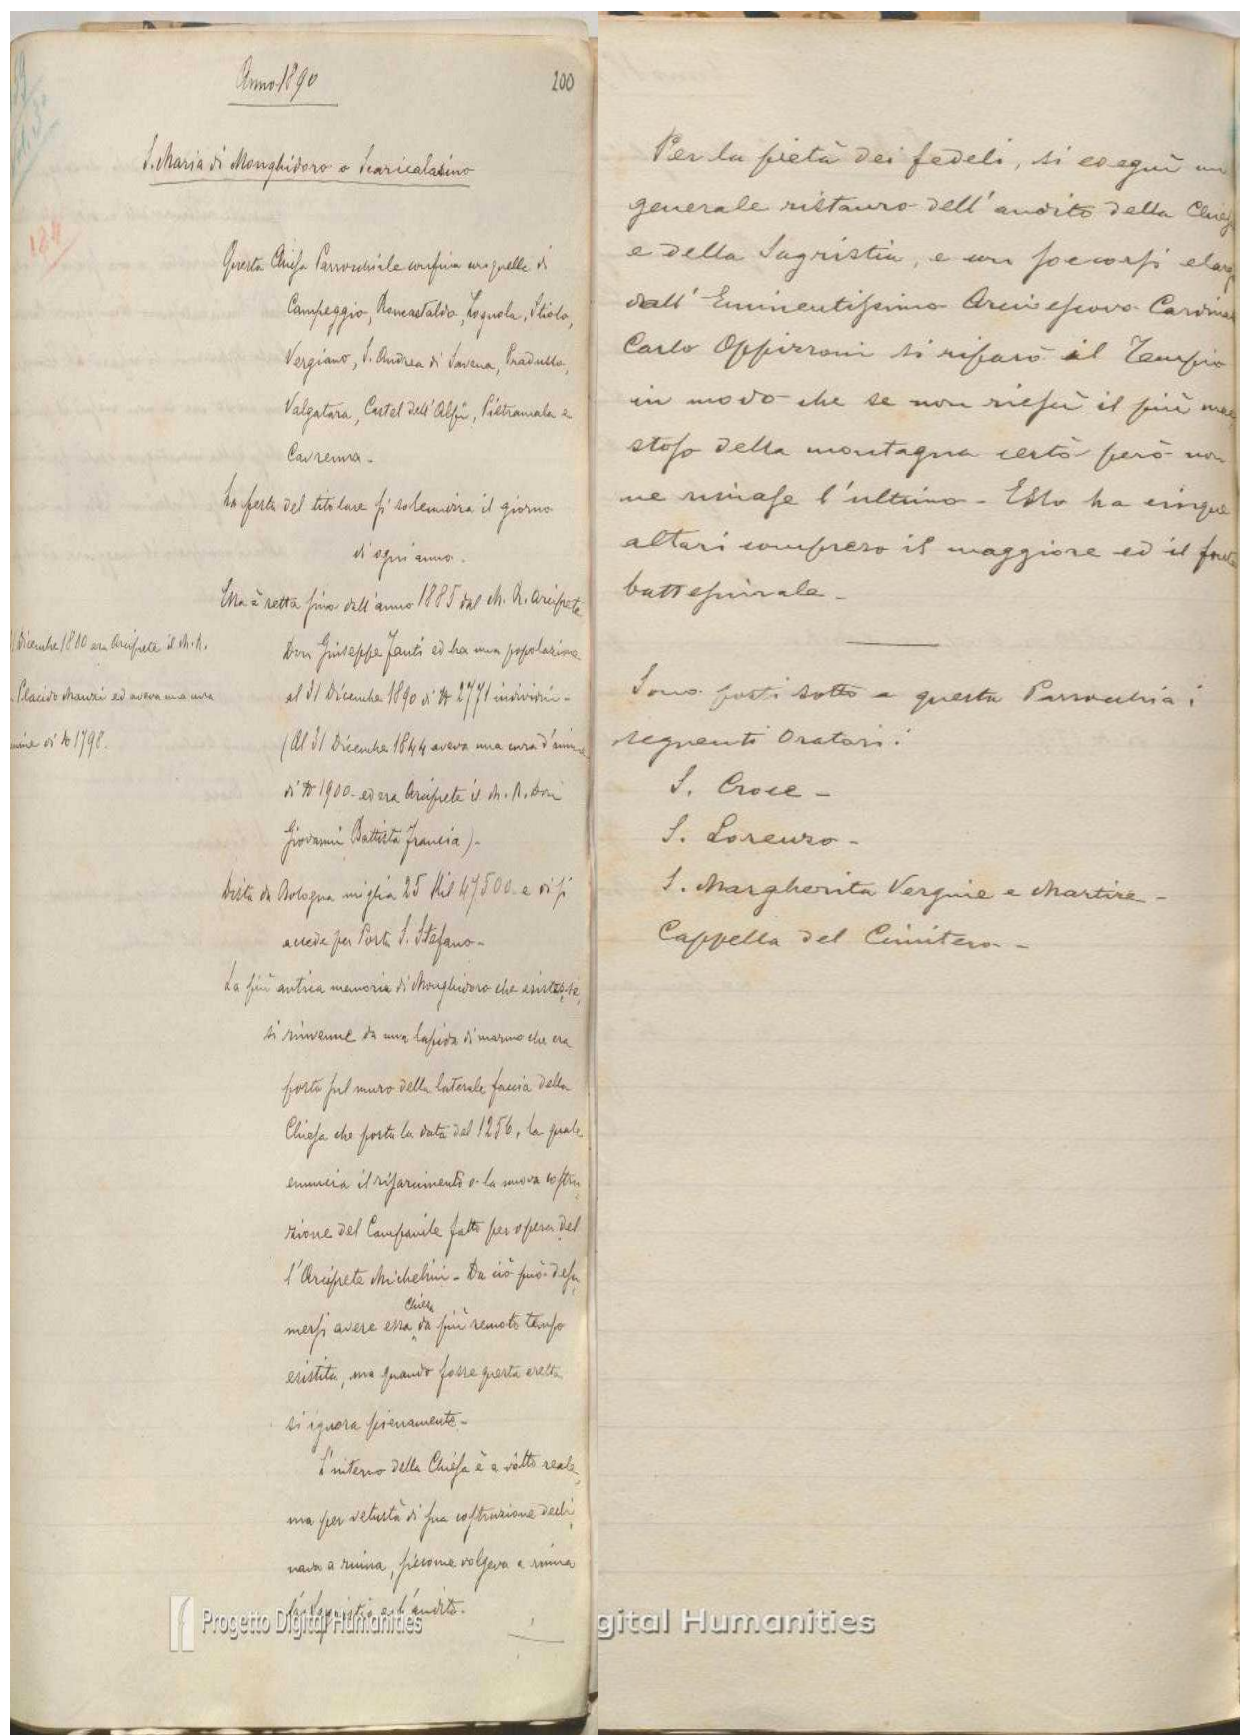 Anno 1890
200
S. Maria di Monghidoro o Scaricalasino
124
Questa Chiesa Parrocchiale confina con quelle di
Campeggio, Roncastaldo, Lognola, Stiolo,
Vergiano, S. Andrea di Savena, Pradusso,
Valgatara, Castel dell'Alpi, Pietramala e
Cavrenna.
La festa del titolare si solennizza il giorno
di ogni anno.
Essa è retta fino dall'anno 1885 dal M. R. Arciprete
Don Giuseppe Fanti ed ha una popolazione
al 31 Dicembre 1890 di N 2771 individui -
(Al 31 Dicembre 1844 aveva una cura d'anime
di N 1900 - ed era Arciprete il M. R. Don
Giovanni Battista Francia) -
Dicembre 1810 era Arciprete il M. R.
Placido Mauri ed aveva una cura
di N 1798.
Dista da Bologna miglia 25 Kil 47500 - e vi si
accede per Porta S. Stefano -
La più antica memoria di Monghidoro che esistesse,
si rinvenne da una lapida di marmo che era
posta sul muro della laterale faccia della
Chiesa che porta la data del 1256, la quale
enuncia il risarcimento o la nuova costru
zione del Campanile fatto per opera del
l'Arciprete Michelini - Da ciò può desu
mersi avere essa Chiesa da più remoto tempo
esistita, ma quando fosse questa eretta
si ignora pienamente -
L'interno della Chiesa è a volto reale
ma per vetustà di sua costruzione decli
nava a ruina, siccome volgeva a ruina
la Sagristia e l'andito.
Progetto Digital Humanities
Per la pietà dei fedeli, si eseguì un
generale ristauro dell'andito della Chiesa
e della Sagristia, e con soccorsi
dall'Eminentissimo Arcivescovo Cardinal
Carlo Oppizzoni si riparò il Tempio
in modo che se non riescì il più mae
stoso della montagna certò però non
ne rimase l'ultimo - Esso ha cinque
altari compreso il maggiore ed il fonte
battesimale -
Sono posti sotto a questa Parrocchia i
seguenti Oratori:
S. Croce -
S. Lorenzo -
S. Margherita Vergine e Martire -
Cappella del Cimitero -
gital Humanities